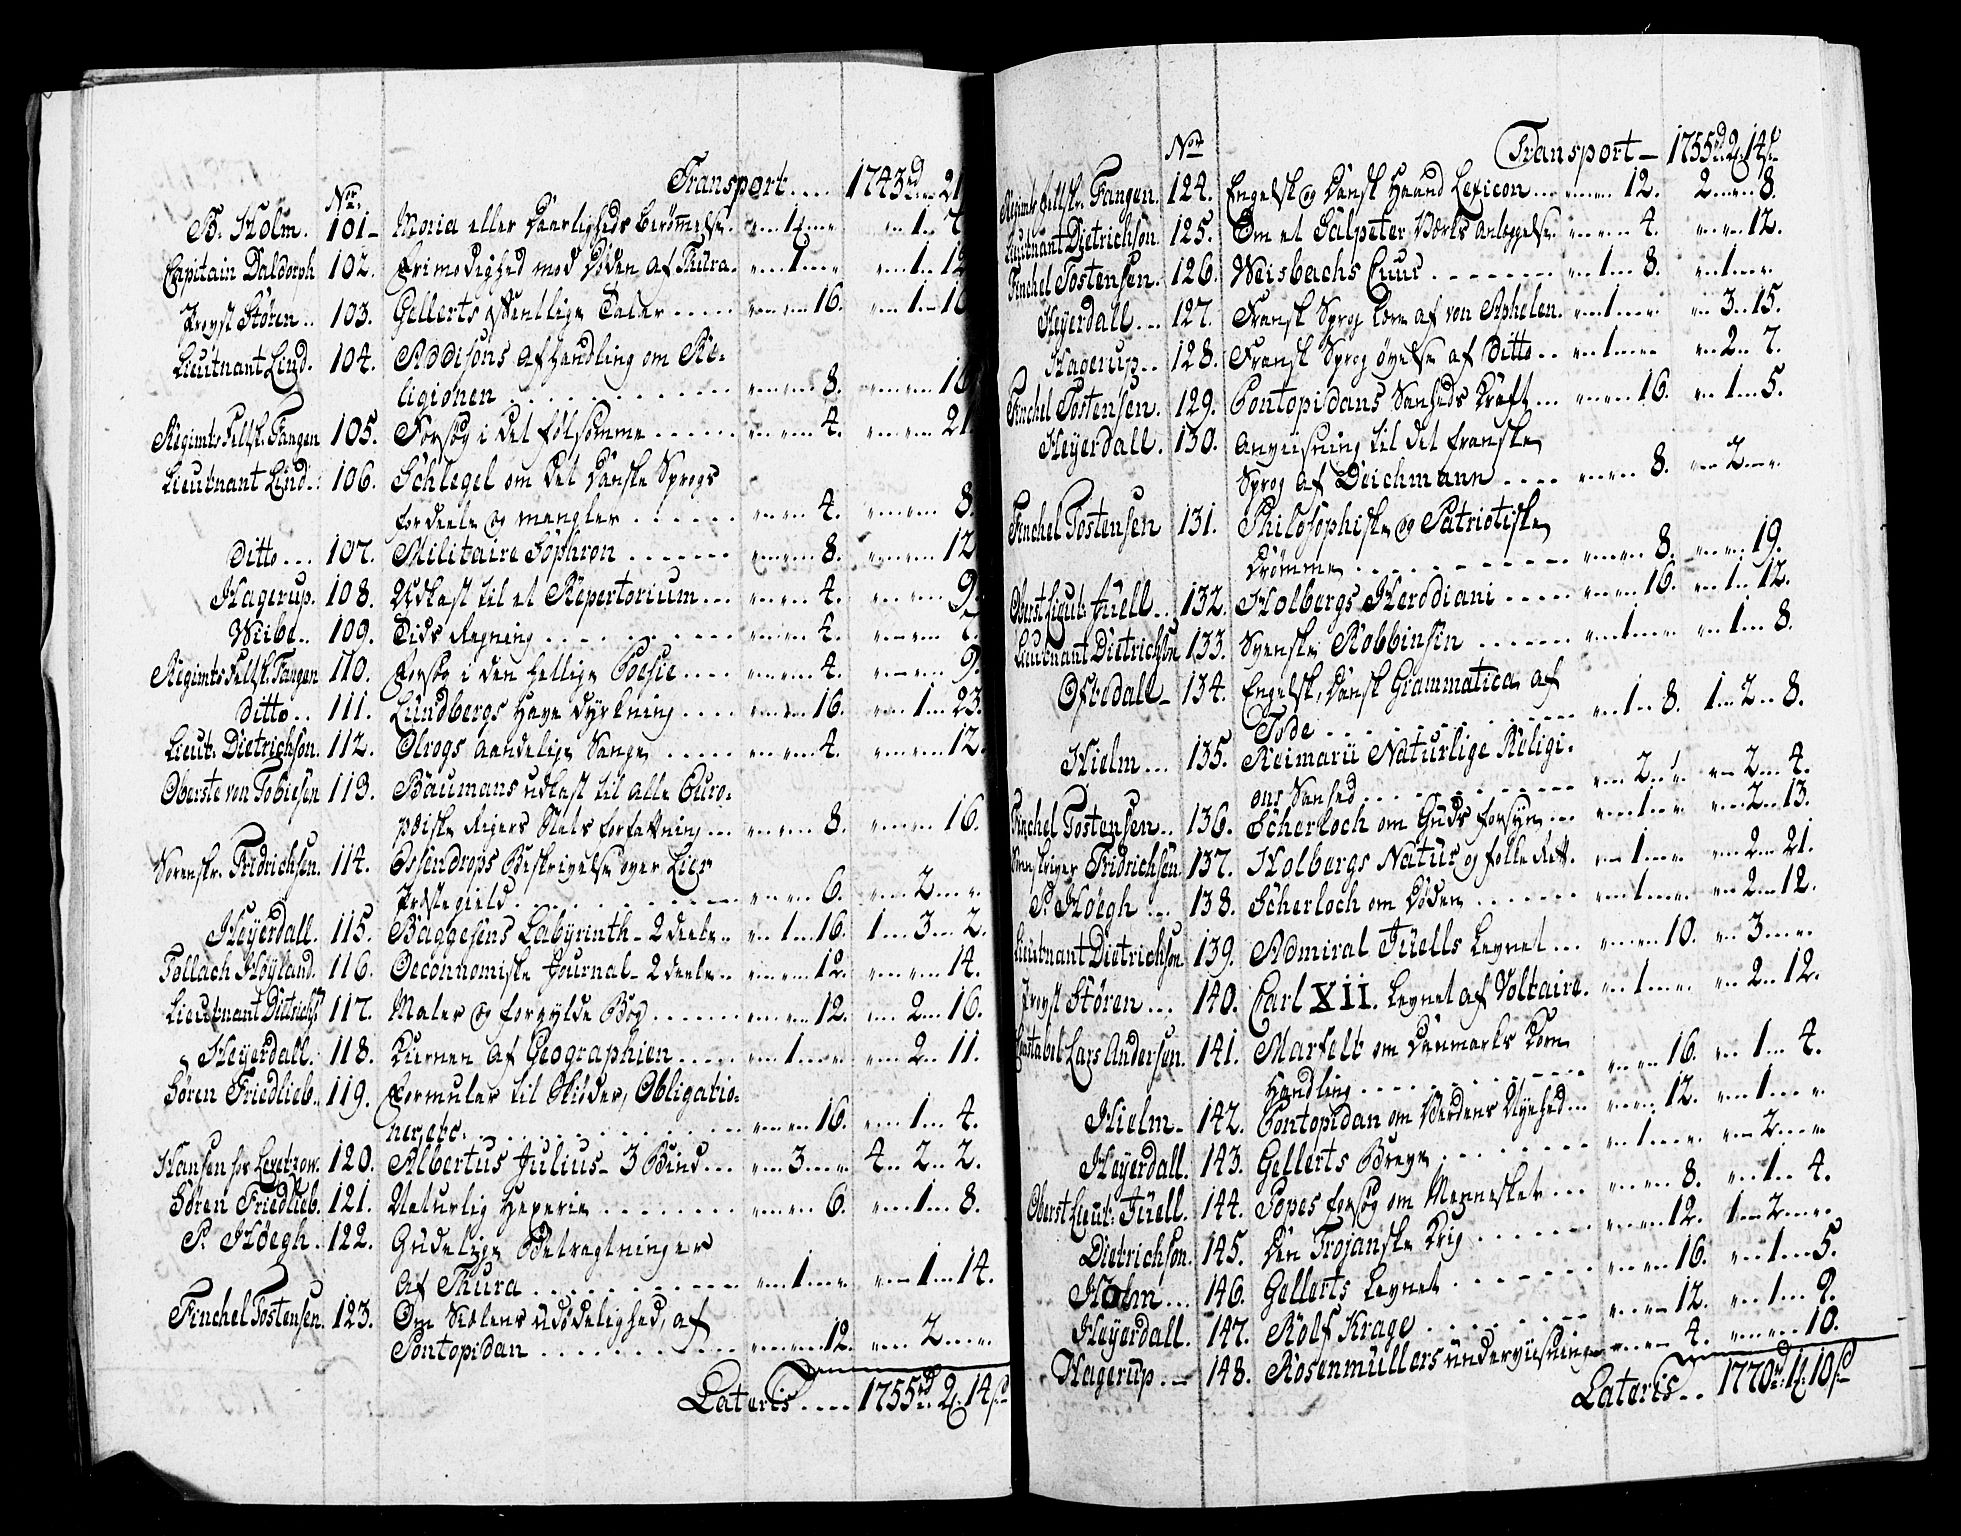 Transport.... 1743rd „ 21
Nr.
B. Holm. 101 Moria eller Daarligheds berømmelse. „ 1 „ „ 1
Capitain Daldorph 102. Frimodighed mod Døden af Thura. „ 1 „ „ 1 „ 12
Provst Støren.. 103. Gellerts offentlige Taler ..... „ „ 16. „ 1 „ 16
Lieutnant Lind. 104. Addisons Afhandling om Re-
ligionen ............ „ „ 8. „ „ 16
Regimts Feltsk. Fangen 105. Forsøg i det følsomme ...... „ „ 4. „ „ 21
Lieutnant Lind.. 106. Schlegel om det Danske Sprogs
fordeele og mangler ...... „ „ 4. „ „ 8.
Ditto... 107. Militaire Sophron ....... „ „ 8. „ „ 12
Hagerup. 108. Udkast til et Repertorium... „ „ 4. „ „ 9.
Wiibe.. 109. Tids Regning .......... „ „ 4. „ „ 7.
Regimts Feltsk. Fangen 110. Forsøg i den hellige Poesie.... „ „ 4. „ „ 9.
Ditto.. 111. Lundbergs Have dyrkning .... „ „ 16. „ 1 „ 23.
Lieut: Dietrichson. 112. Olrogs aandelige Sange ..... „ „ 4. „ „ 12.
Oberste von Tobiesen 113. Baumans udkast til alle Euro-
pæiske Rigers Stats forfatning... „ „ 8. „ „ 16.
Sorenskr. Fridrichsen. 114. Essendrops Beskrivelse over Lier
Præstegield ........... „ „ 6. „ 2 „
Heyerdall. 115. Baggesens Labyrinth - 2 deele.. „ 1 „ 16. 1 „ 3 „ 2.
Tollach Høyland. 116. Oeconnomiske Journal - 2 deele.. „ „ 12. „ „ 14.
Lieutnant Dietrichs. 117. Maler og forgylde Bog ...... „ „ 12. „ 2 „ 16.
Heyerdall. 118. Kiernen af Geographien ..... „ 1 „ „ 2 „ 11.
Søren Friedlieb.. 119. Formular til Skiøder, Obligatio-
ner, etc. ............ „ „ 16. „ 1 „ 4.
Hansen for Levetzow. 120. Albertus Julius - 3 Bind... „ 3 „ 4 „ 2 „ 2.
Søren Friedlieb. 121. Naturlig Hexerie ........ „ „ 6. „ 1 „ 8.
P. Høegh. 122. Gudelige Betragtninger
af Thura ............ „ 1 „ „ 1 „ 14.
Finchel Tostensen. 123. Om Siælens udødelighed, af
Pontopidan ........... „ „ 12. „ 2 „
Lateris.... 1755rd 2 14s
Transport - 1755rd 2 14s
Nr
Regimts feltskr. Fangen. 124. Engelsk og Dansk Haand Lexicon... „ „ 12. 2 „ 8.
Lieutnant Dietrichson. 125. Om et Salpeter Værks Anleggelse. „ „ 4. „ „ 12.
Finchel Tostensen. 126. Weisbachs Cuur ....... „ 1 „ 8. „ 1 „
Heyerdall... 127. Fransk Sprog Lære af von Aphelen. „ 1 „ „ 3 „ 15.
Hagerup.. 128. Fransk Sprog øvelse af Ditto.. „ 1 „ „ 2 „ 7.
Finchel Tostensen. 129. Pontopidans Sanheds Kraft... „ „ 16. „ 1 „ 5.
Heyerdall. 130. Anviisning til det franske
Sprog af Deichmann .... „ „ 8. „ 2 „
Finchel Tostensen 131. Philosophiske og Patriotiske
Drømme ............ „ „ 8. „ „ 19.
Oberst Lieut: Juell.. 132. Holbergs Herodiani ..... „ „ 16. „ 1 „ 12.
Lieutnant Dietrichson 133. Svenske Robbinsin ...... „ 1 „ „ 1 „ 8.
Oftedall - 134. Engelsk, Dansk Grammatica, af
Tode ............ „ 1 „ 8. 1 „ 2 „ 8.
Hielm... 135. Reimarii Naturlige Religi-
ons Sanhed .......... „ 2 „ „ 2 „ 4.
Finchel Tostensen.. 136. Scherloch om Guds forsyn... „ 1 „ „ 2 „ 13.
Sorenskriver Fridrichsen. 137. Holbergs Natur og folke Rett. „ 1 „ „ 2 „ 21.
P. Høegh... 138. Scherloch om Døden ....... „ 1 „ „ 2 „ 12.
Lieutnant Dietrichson. 139. Admiral Juells Levnet... „ „ 10. „ 3 „
Provst Støren... 140. Carl XII. Levnet af Voltaire. „ 1 „ „ 2 „ 12.
Lars Andersen. 141. Marfelt om Danmarks Korn
Handling ............ „ „ 16. „ 1 „ 4.
Hielm - 142. Pontopidan om Verdens Nyehed... „ „ 12. „ 1 „
Heyerdall. 143. Gellerts Breve ........ „ 1 „ „ 2 „
Oberst Lieut: Juell. 144. Popes forsøg om Mennesket ... „ „ 8. „ 1 „ 4.
Dietrichson. 145. Den Trojanske Krig ...... „ „ 12. 1 „ 2 „
Holm... 146. Gellerts Levnet ........ „ „ 16. „ 1 „ 5.
Heyerdall. 147. Rolf Krage .......... „ „ 12. „ 1 „ 9.
Hagerup. - 148. Rosenmullers underviisning „ „ 4. „ „ 10.
Lateris.. 1770rd 1 10s